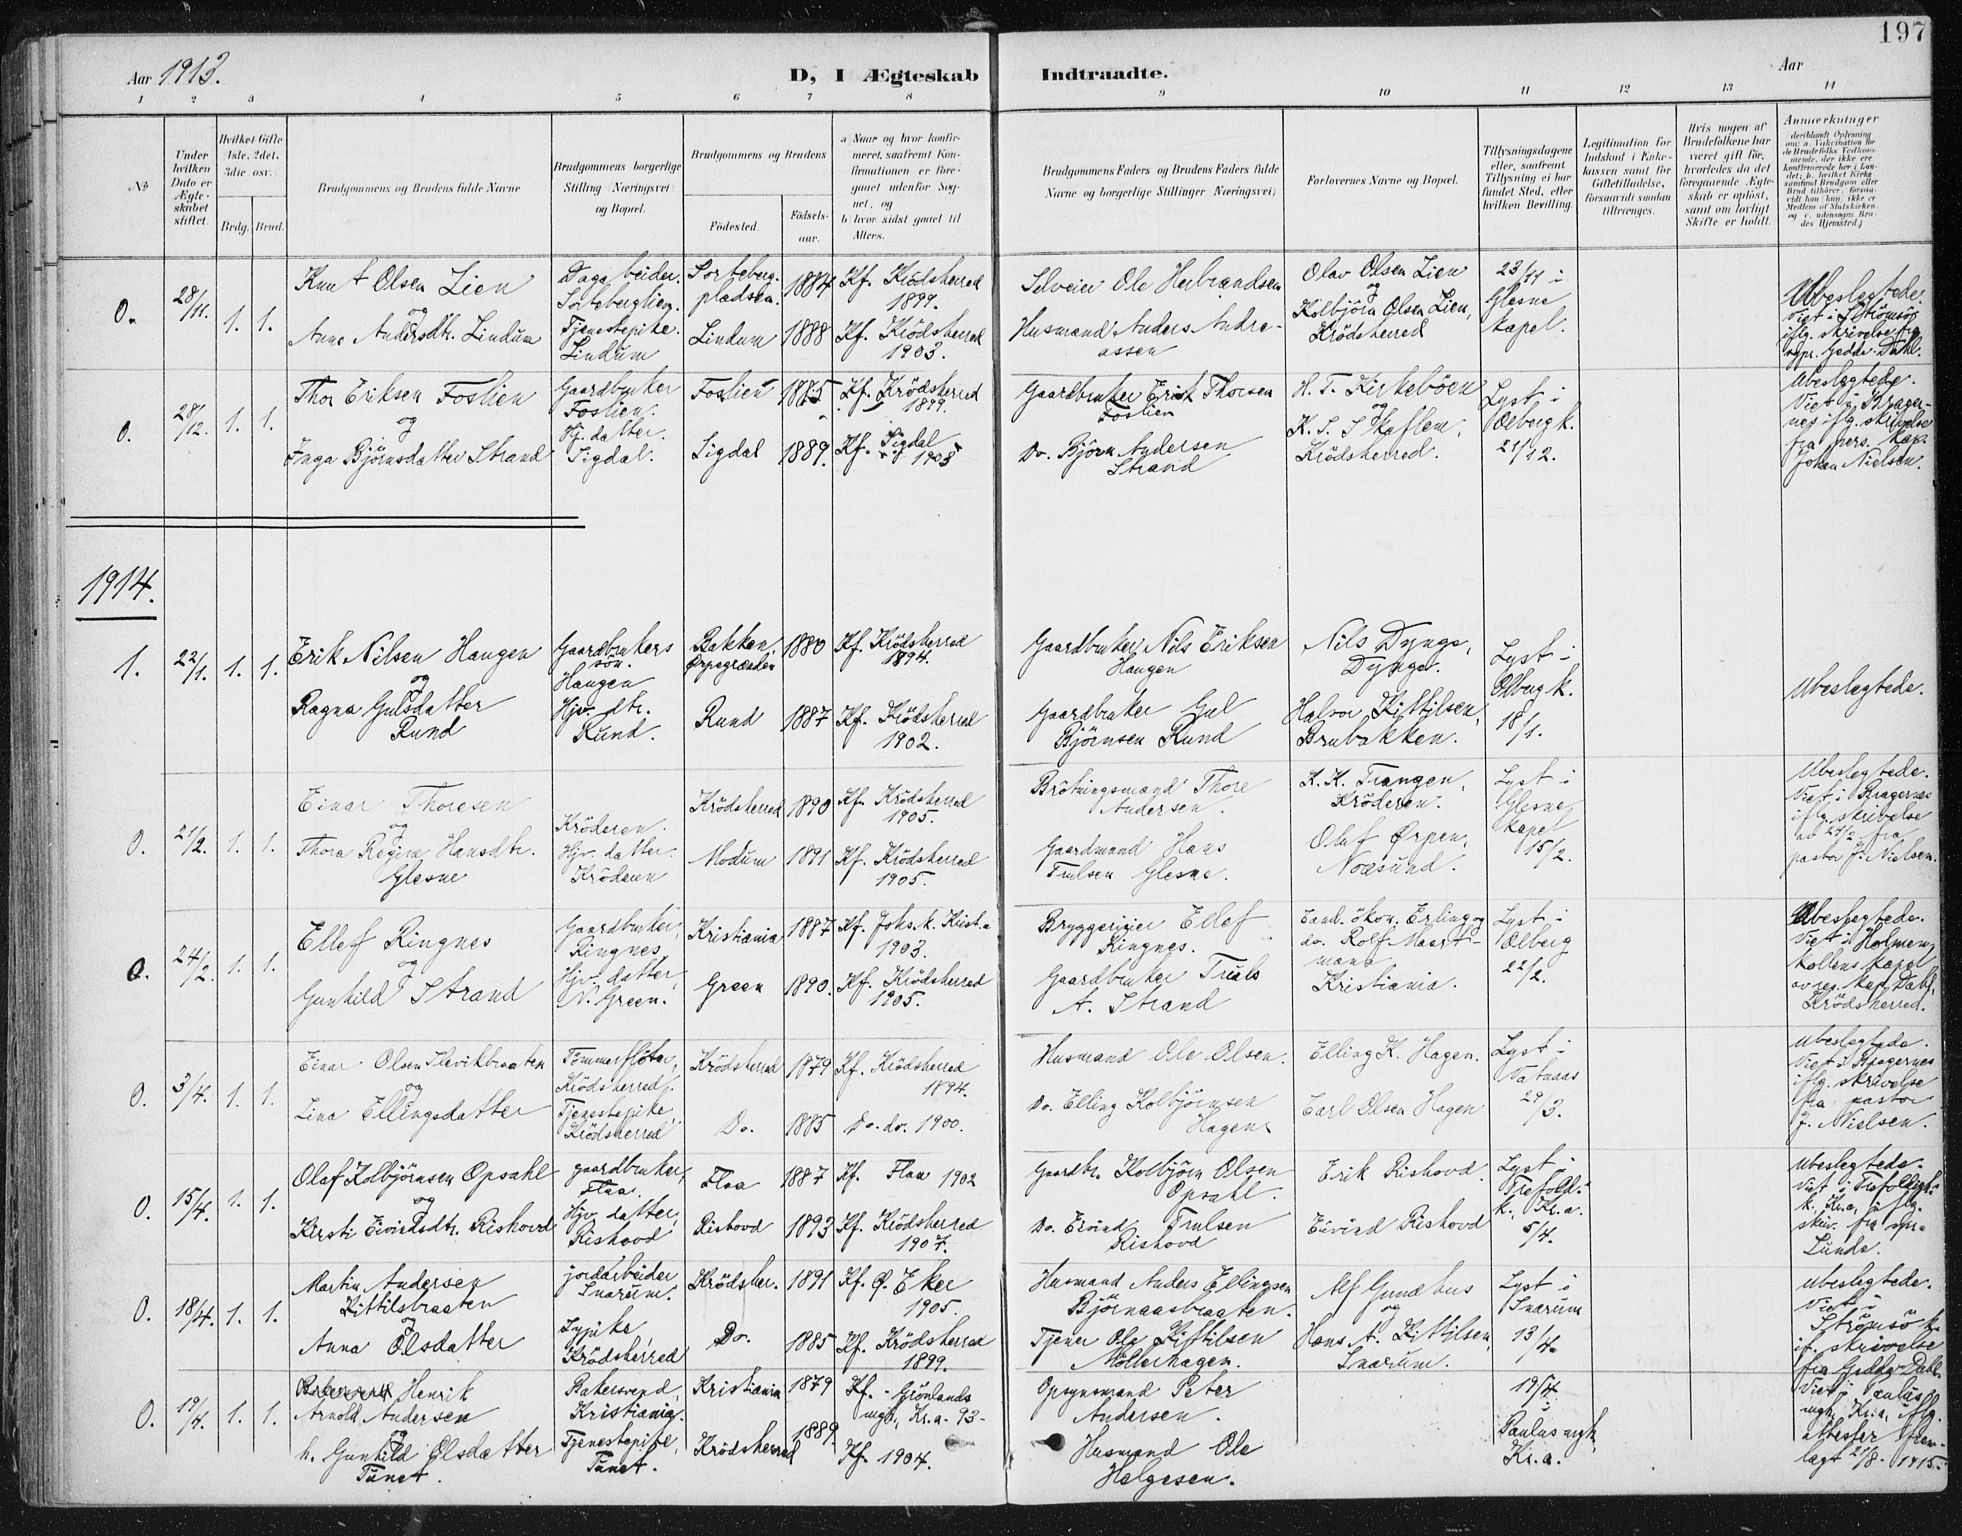 197
Aar 1913.
D, I Ægteskab Indtraadte.
Aar
1 2 3 4 5 6 7 8 9 10 11 12 13 14
No
Under hvilken Dato er Ægteskabet stiftet.
Hvilket Gifte 1ste, 2det, 3die osv.
Brdg. Brud.
Brudgommens og Brudens fulde Navne
Brudgommens borgerlige Stilling (Næringsvei) og Bopæl.
Brudgommens og Brudens
Fødested.
Fødselsaar.
a) Naar og hvor konfirmeret, saafremt Konfirmationen er foregaaet udenfor Sognet, og
b) hvor sidst gaaet til Alters.
Brudgommens Faders og Brudens Faders fulde Navne og borgerlige Stillinger (Næringsvei)
Forlovernes Navne og Bopæl.
Tillysningsdagene eller, saafremt Tillysning ei har fundet Sted, efter hvilken Bevilling.
Legitimation for Indskud i Enkekassen samt for Giftetilladelse, forsaavidt saadan tiltrænges.
Hvis nogen af Brudefolkene har været gift før, hvorledes da det foregaaende Ægteskab er opløst, samt om lovligt Skifte er holdt.
Anmerkninger
0. 28/11. 1. 1.
Knut Olsen Lien
og
Anne Andersdtr. Lindum
Sorteberglien.
Tjenestepike.
Lindum
Sorteberg-
pladsen.
Lindum
1884
1888
Kf. Krödsherred
1899.
Kf. Krödsherred
1903.
Selveier Ole Herbrandsen
Husmand Anders Andre-
assen
Olav Olsen Lien
og
Kolbjörn Olsen Lien,
Krödsherred
23/11 i
Glesne
kapel.
Ubeslegtede.
Viet i Strömsö
iflg. skrivelse fra
Gedde-Dahl.
0. 28/12. 1. 1.
Thor Eriksen Foslien
og
Inga Björnsdatter Strand
Gaardbruker
Foslien.
Hj. datter.
Sigdal.
Foslien
Sigdal
1885
1889.
Kf. Krödsherred
1899.
Kf. Sigdal
1905
Gaardbruker Erik Thorsen
Foslien
Do. Björn Andersen
Strand
H. T. Kirkeböen
og
K. T. Skaflem,
Krödsherred.
Lyst i
Ølberg k.
21/12.
Ubeslegtede.
Viet i Brager-
nes iflg. skrivelse
fra pers. kap.
Johan Nielsen.
1914.
1. 22/1. 1. 1.
Erik Nilsen Haugen
og
Ragna Gulsdatter
Rund
Gaardbrukers
sön.
Haugen
Hjv. dtr.
Rund.
Bakken
Ørpegrænden
Rund
1880
1887
Kf. Krödsherred
1894.
Kf. Krödsherred
1902.
Gaardbruker Nils Eriksen
Haugen
Gaardbruker Gul
Björnsen Rund
Nils Dynge,
Dynge.
Halvor Kittilsen,
Brubakken.
Lyst i
Olberg k.
18/1.
Ubeslegtede.
0. 21/2. 1. 1.
Einar Thoresen
og
Thora Regine Hansdtr.
Glesne
Kröderen.
Hjv. datter.
Kröderen
Krödsherred
Modum
1890
1891
Kf. Krödsherred
1905.
Kf. Krödsherred
1905.
Brötningsmand Thore
Andersen.
Gaardmand Hans
Trulsen Glesne.
K. K. Trangen,
Kröderen.
Olaf Ørpen,
Noresund.
Lyst i
Glesne
kapel
15/2.
Ubeslegtede.
Viet i Bragernes
iflg. skrivelse
av 21/2 fra
pastor J. Nielsen.
0. 24/2. 1. 1.
Ellef Ringnes
og
Gunhild Strand
Gaardbruker,
Ringnes,
Hjv. datter,
N. Green.
Kristiania
Green
1887
1890.
Kf. Johs. k. Krist.a
1903.
Kf. Krödsherred
1905.
Bryggerieier Ellef
Ringnes.
Gaardbruker Truls
A. Strand
Cand. ökon. Erling og
do. Rolf Maart-
mann
Kristiania.
Lyst i
Ølberg
22/2.
Ubeslegtede.
Viet i Holmen-
kollens kapel
av res. kap. Dahl,
Krödsherred.
0. 3/4. 1. 1.
Einar Olsen Slevikbraaten
og
Lina Ellingsdatter
Tömmerflöter,
Krödsherred.
Tjenestepike
Krödsherred
Krödsherred
Do.
1879
1885
Kf. Krödsherred
1894.
Do. do. 1900.
Husmand Ole Olsen.
Do. Elling Kolbjörnsen
Hagen
Elling K. Hagen.
Carl Olsen Hagen
Lyst i
Vatnaas
29/3.
Ubeslegtede.
Viet i Bragernes
iflg. skrivelse
fra pastor
J. Nielsen.
0. 15/4. 1. 1.
Olaf Kolbjörnsen Opsahl
og
Kirsti Eivindsdtr. Rishovd
gaardbruker,
Flaa.
Hjv. datter,
Rishovd
Flaa
Rishovd
1887
1893
Kf. Flaa 1902
Kf. Krödsherred
1907.
Gaardbr. Kolbjörn Olsen
Opsahl.
Do. Eivind Trulsen
Rishovd
Erik Rishovd.
Eivind Rishovd
Lyst i
Trefold.
k. Kr.a.
5/4.
Ubeslegtede.
Viet i Trefoldigh.
k. Kr.a. iflg.
skriv. fra spr.
Lunde.
0. 18/4. 1. 1.
Martin Andersen
Kittilsbraaten
og
Anna Olsdatter
jordarbeider
Snarum.
Sypike,
Krödsherred
Krödsher.
Do.
1891
1885
Kf. Ø. Eker
1905.
Kf. Krödsherred
1899.
Husmand Anders Ellingsen
Björnaasbraaten.
Tjener Ole Kittilsen
Möllerhagen.
Alf Gundhus
og
Hans A. Kittilsen,
Snarum.
Lyst i
Snarum
13/4.
Ubeslegtede.
Viet i
Strömsö k.
if. skrivelse
fra Gedde-Dahl.
0. 19/4. 1. 1.
Henrik
Arnold Andersen
og
h. Gunhild Olsdatter
Tunet.
Bakersvend,
Kristiania.
Tjenestepike,
Tunet.
Kristiania
Krödsherred
1879
1889.
Kf. Grønlands
mgh, Kr.a. 93-
Kf. 1904.
Opsynsmand Peter
Andersen.
Husmand Ole
Helgesen.
19/4
i
Paulus mgh,
Kr.a.
Viet i Paulus
mgh. Kr.a. iflg.
attester frem-
lagt 21/8-1915.